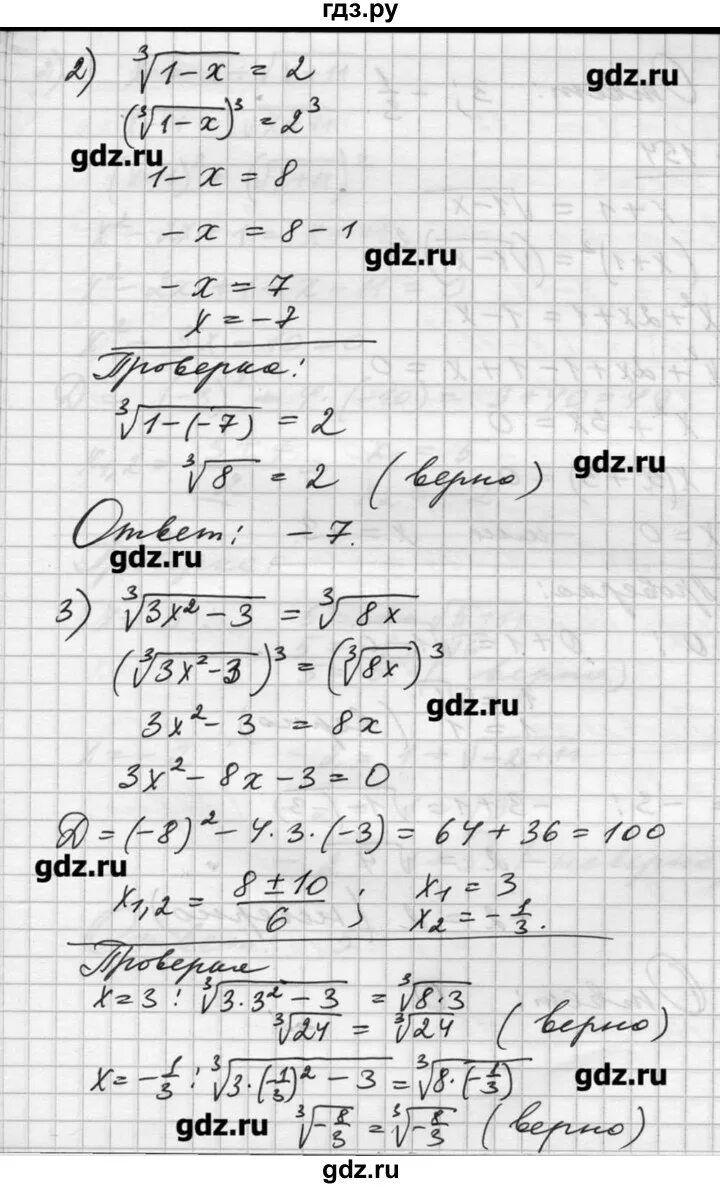 гдз.ру
2) ∛(1-x) = 2
gdz.ru
(∛(1-x))³ = 2³
gdz.ru
1-x = 8
-x = 8-1
gdz.ru
-x = 7
x = -7
Проверка:
∛(1-(-7)) = 2
∛8 = 2 (верно)
gdz.ru
Ответ: -7.
gdz.ru
3) ∛(3x²-3) = ∛(8x)
(∛(3x²-3))³ = (∛(8x))³
gdz.ru
3x²-3 = 8x
3x²-8x-3=0
Д = (-8)²-4·3·(-3) = 64+36 = 100
gdz.ru
x₁,₂ = (8±10)/6 ; x₁ = 3
x₂ = -1/3.
Проверка
x=3: ∛(3·3²-3) = ∛(8·3)
∛24 = ∛24 (верно)
x=-1/3: ∛(3·(-1/3)²-3) = ∛(8·(-1/3))
gdz.ru
gdz.ru
∛(-8/3) = ∛(-8/3) (верно)
gdz.ru